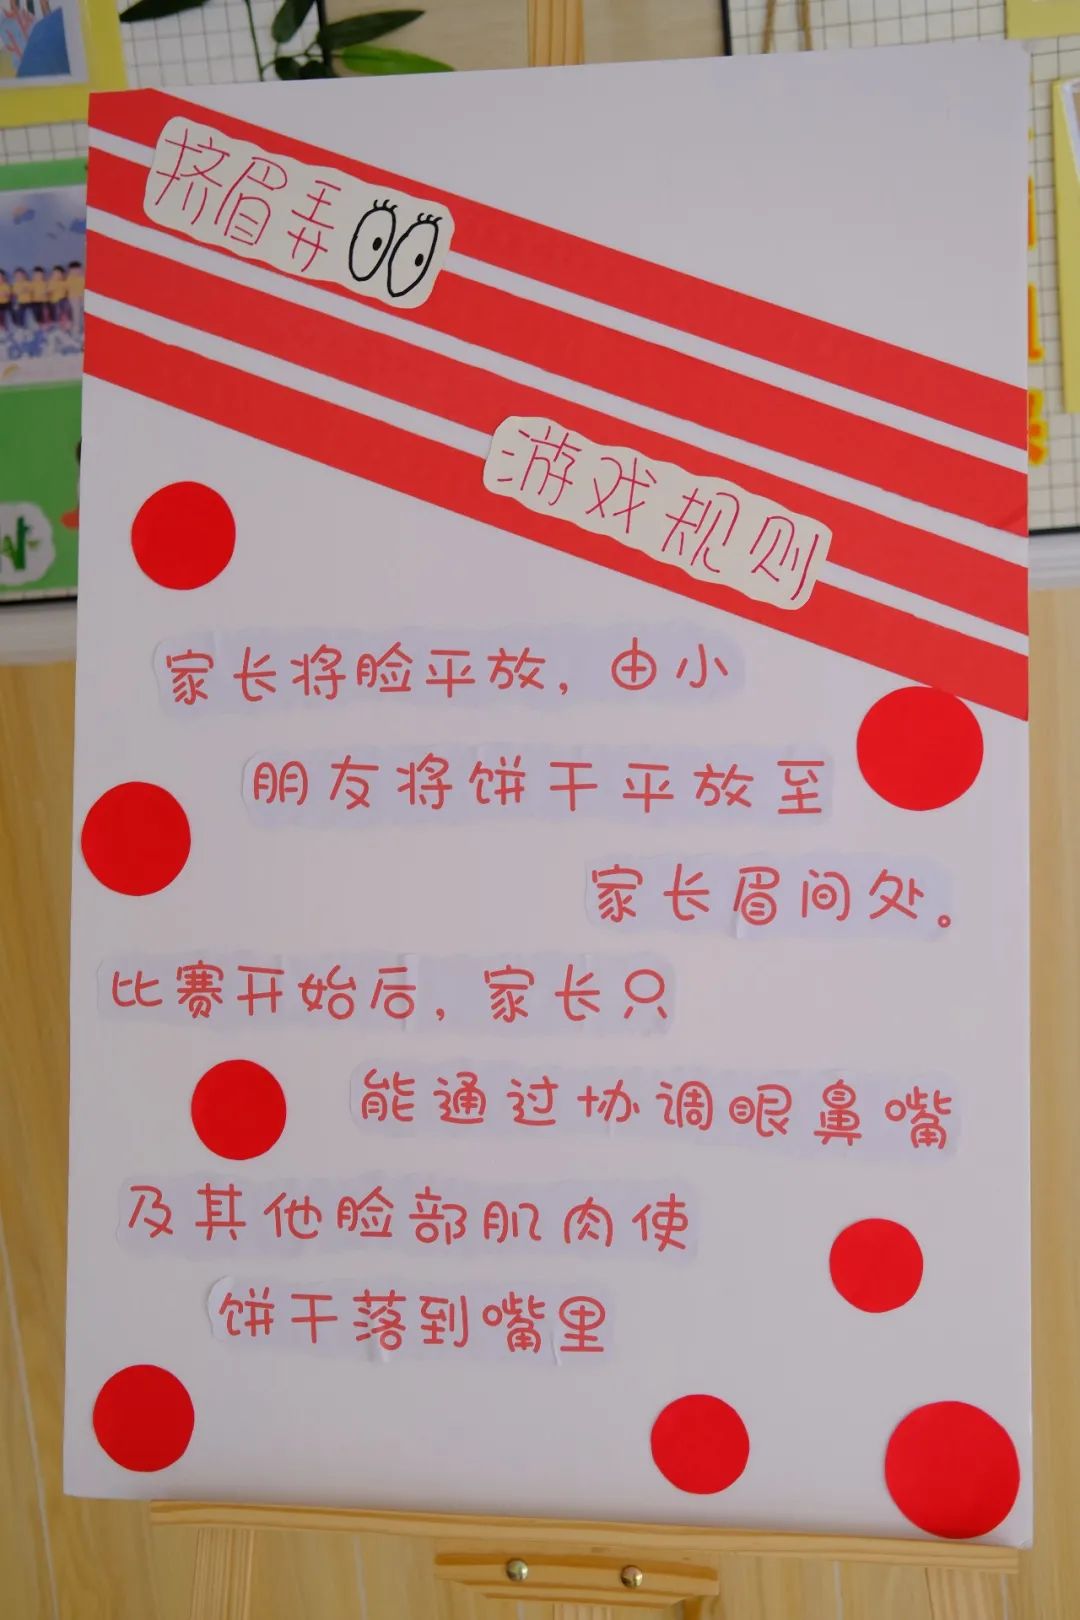 挤眉弄
游戏规则
家长将脸平放，由小
朋友将饼干平放至
家长眉间处。
比赛开始后，家长只
能通过协调眼鼻嘴
及其他脸部肌肉使
饼干落到嘴里